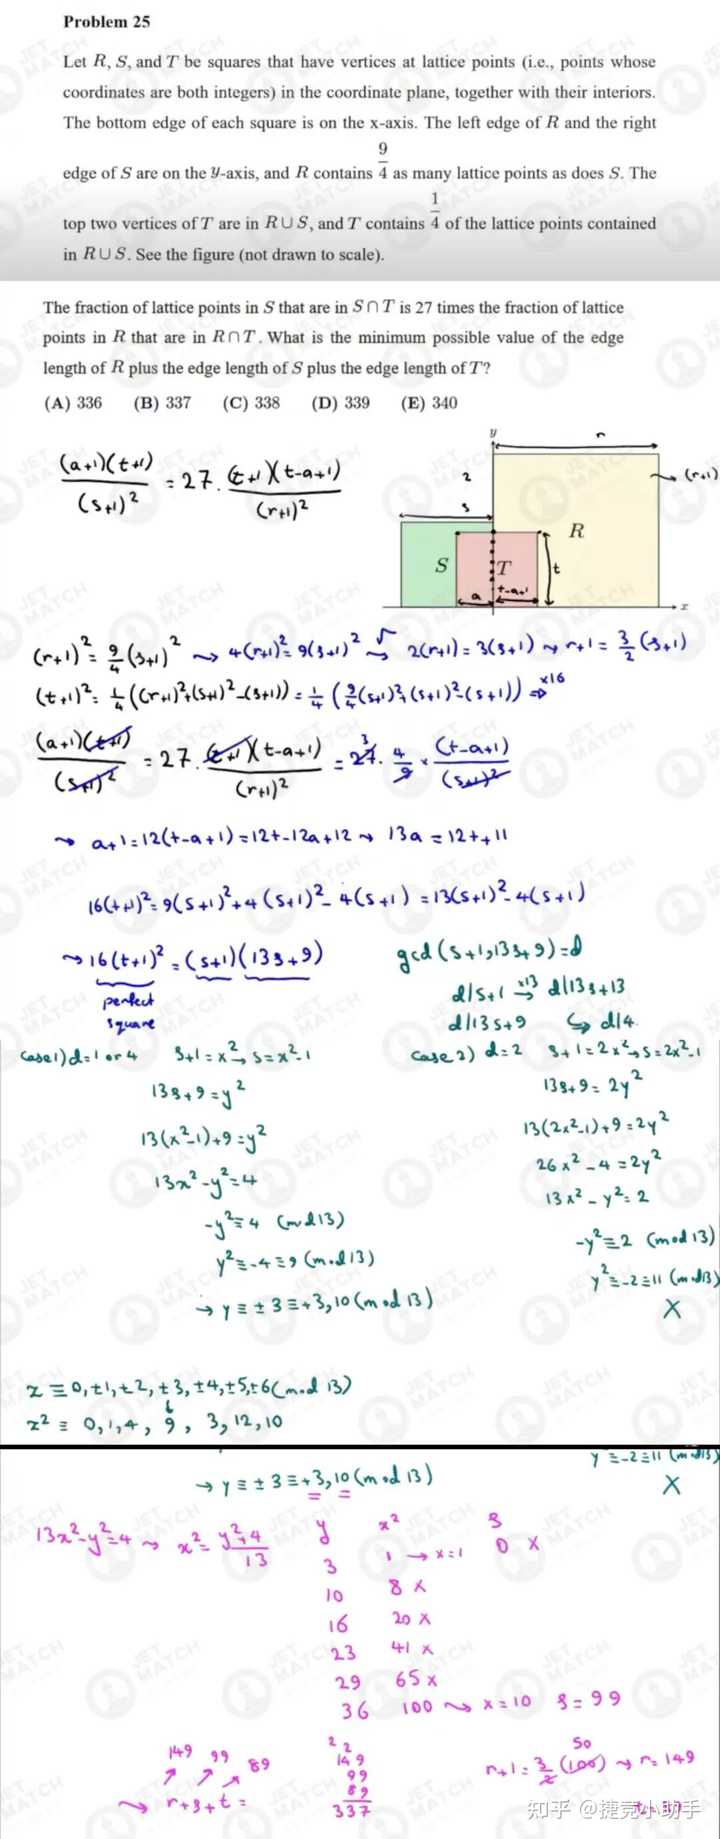 Problem 25
Let R, S, and T be squares that have vertices at lattice points (i.e., points whose
coordinates are both integers) in the coordinate plane, together with their interiors.
The bottom edge of each square is on the x-axis. The left edge of R and the right
edge of S are on the y-axis, and R contains 9/4 as many lattice points as does S. The
top two vertices of T are in R ∪ S, and T contains 1/4 of the lattice points contained
in R ∪ S. See the figure (not drawn to scale).
The fraction of lattice points in S that are in S ∩ T is 27 times the fraction of lattice
points in R that are in R ∩ T. What is the minimum possible value of the edge
length of R plus the edge length of S plus the edge length of T?
(A) 336 (B) 337 (C) 338 (D) 339 (E) 340
(a+1)(t+1)/(s+1)² = 27 · (t+1)(t-a+1)/(r+1)²
y
r
2
(r+1)
s
R
S
T
t
a
t-a+1
x
(r+1)² = 9/4 (s+1)² → 4(r+1)² = 9(s+1)² √→ 2(r+1) = 3(s+1) → r+1 = 3/2 (s+1)
(t+1)² = 1/4 ((r+1)² + (s+1)² - (s+1)) = 1/4 (9/4 (s+1)² + (s+1)² - (s+1)) ⇒ x16
(a+1)(t+1)/(s+1)² = 27 · (t+1)(t-a+1)/(r+1)² = 27 3 · 4/9 × (t-a+1)/(s+1)²
→ a+1 = 12(t-a+1) = 12t-12a+12 → 13a = 12t+11
16(t+1)² = 9(s+1)² + 4(s+1)² - 4(s+1) = 13(s+1)² - 4(s+1)
→ 16(t+1)² = (s+1)(13s+9)
perfect
square
gcd(s+1, 13s+9) = d
d|s+1 x13→ d|13s+13
d|13s+9 ↳ d|4
case 1) d=1 or 4 s+1 = x² → s = x²-1
13s+9 = y²
13(x²-1)+9 = y²
13x² - y² = 4
-y² ≡ 4 (mod 13)
y² ≡ -4 ≡ 9 (mod 13)
→ y ≡ ±3 ≡ +3, 10 (mod 13)
case 2) d=2 s+1 = 2x² → s = 2x²-1
13s+9 = 2y²
13(2x²-1)+9 = 2y²
26x² - 4 = 2y²
13x² - y² = 2
-y² ≡ 2 (mod 13)
y² ≡ -2 ≡ 11 (mod 13)
X
z ≡ 0, ±1, ±2, ±3, ±4, ±5, ±6 (mod 13)
z² ≡ 0, 1, 4, 9, 3, 12, 10
y ≡ -2 ≡ 11 (mod 13)
→ y ≡ ±3 ≡ +3, 10 (mod 13)
X
13x² - y² = 4 → x² = y²+4/13
y x² s
3 1 → x=1 0 X
10 8 X
16 20 X
23 41 X
29 65 X
36 100 → x=10 s=99
r+1 = 3/2 (100) 50 → r = 149
149 99 89
→ r+s+t =
2 2
149
99
89
337
知乎 @捷竞小助手
JET MATCH